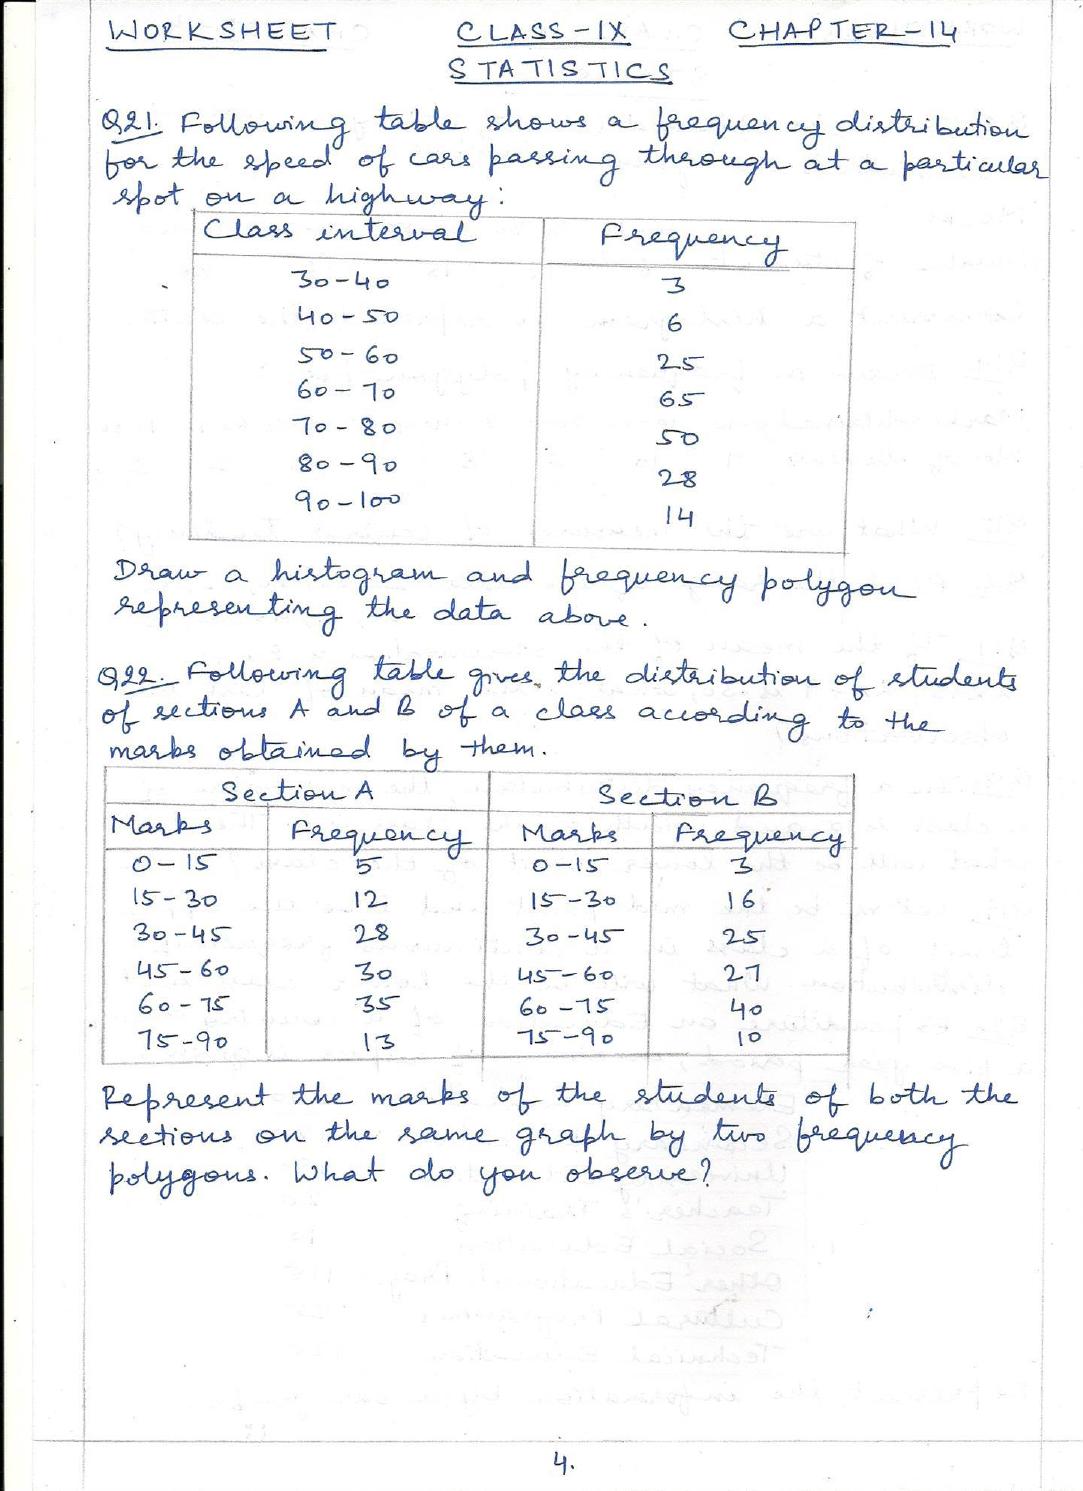 WORKSHEET CLASS-IX CHAPTER-14
STATISTICS
Q21. Following table shows a frequency distribution
for the speed of cars passing through at a particular
spot on a highway:
Class interval Frequency
30-40 3
40-50 6
50-60 25
60-70 65
70-80 50
80-90 28
90-100 14
Draw a histogram and frequency polygon
representing the data above.
Q22. Following table gives the distribution of students
of sections A and B of a class according to the
marks obtained by them.
Section A Section B
Marks Frequency Marks Frequency
0-15 5 0-15 3
15-30 12 15-30 16
30-45 28 30-45 25
45-60 30 45-60 27
60-75 35 60-75 40
75-90 13 75-90 10
Represent the marks of the students of both the
sections on the same graph by two frequency
polygons. What do you observe?
4.